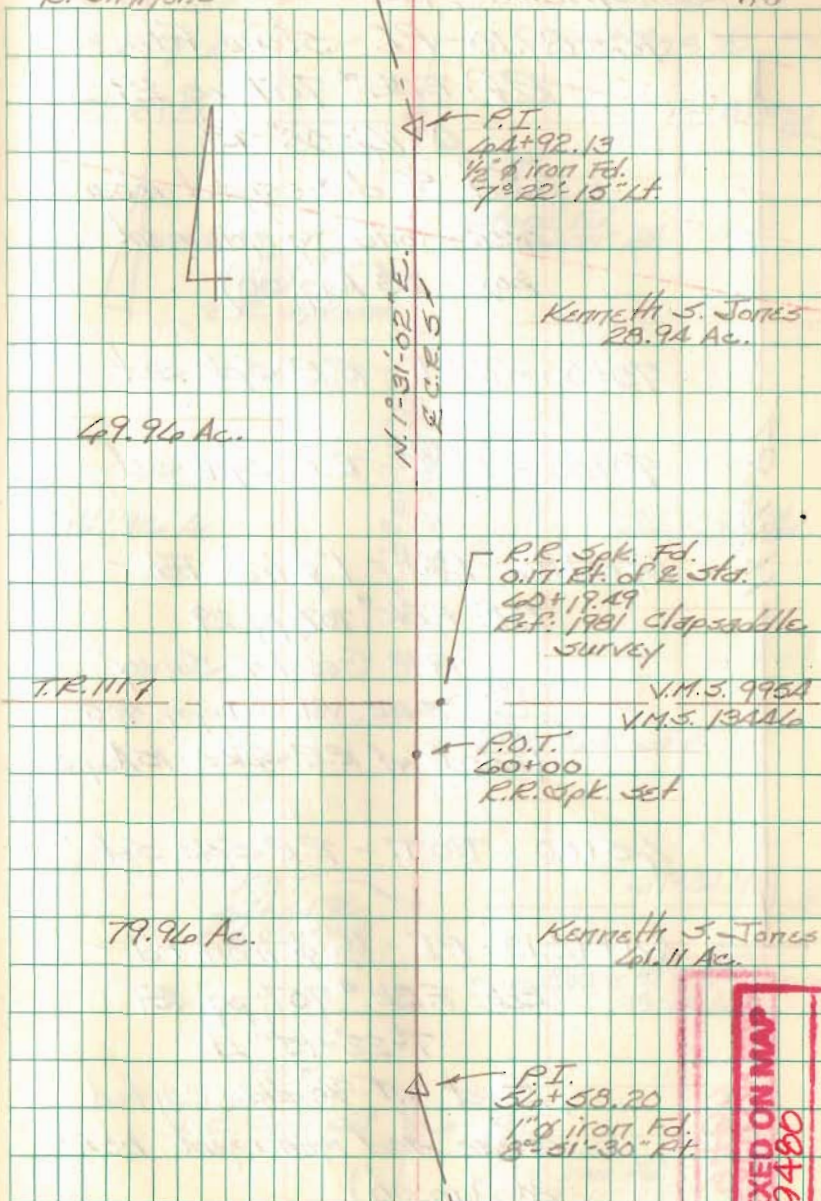 P.I.
64+92.13
1/2" ø iron Fd.
7°-22'-15" Lt.
N. 1°-31'-02" E.
℄ C.R. 51
Kenneth S. Jones
28.94 Ac.
69.96 Ac.
R.R. Spk. Fd.
0.17' Rt. of ℄ sta.
60+19.49
Ref: 1981 Clapsaddle
survey
T.R. 111
V.M.S. 9954
V.M.S. 13446
P.O.T.
60+00
R.R. Spk. set
79.96 Ac.
Kenneth S. Jones
61.11 Ac.
P.I.
56+58.20
1" ø iron Fd.
8°-51'-30" Rt.
XED ON MAP
2480